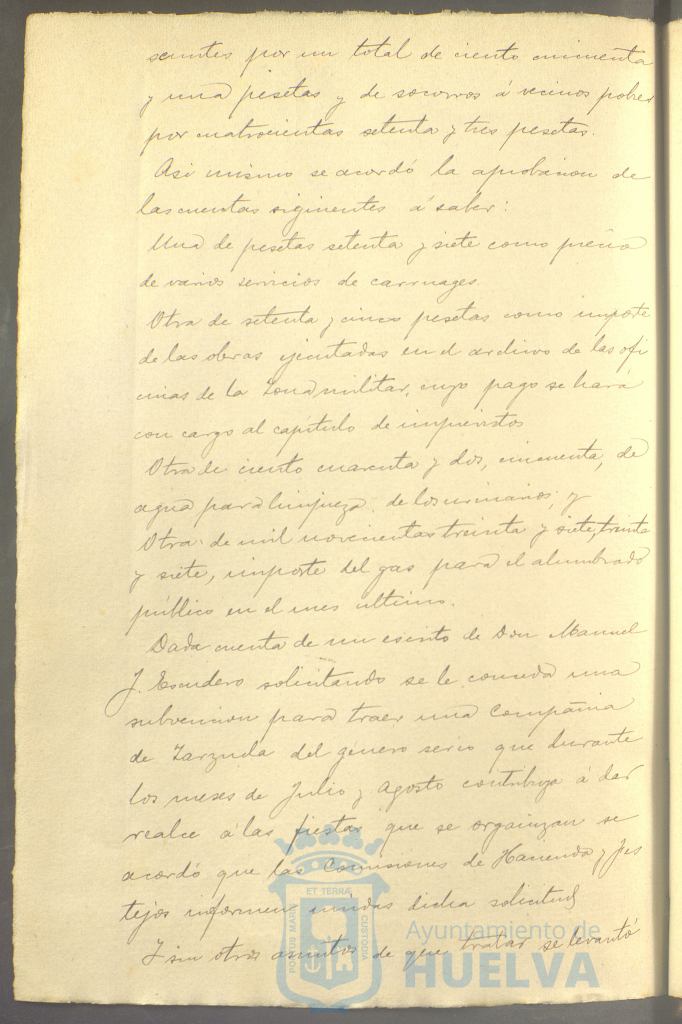 sentes por un total de ciento cincuenta
y una pesetas y de socorros á vecinos pobres
por cuatrocientas setenta y tres pesetas.
Asi mismo se acordó la aprobacion de
las cuentas siguientes á saber:
Una de pesetas setenta y siete como precio
de varios servicios de carruages.
Otra de setenta y cinco pesetas como importe
de las obras ejecutadas en el archivo de las ofi
cinas de la Zona militar, cuyo pago se hará
con cargo al capítulo de imprevistos
Otra de ciento cuarenta y dos, cincuenta, de
agua para limpieza de los urinarios; y
Otra de mil novecientas treinta y siete, treinta
y siete, importe del gas para el alumbrado
público en el mes ultimo.
Dada cuenta de un escrito de Don Manuel
J. Escudero solicitando se le conceda una
subvencion para traer una Compañia
de Zarzuela del género serio que durante
los meses de Julio y Agosto contribuya á dar
realce á las fiestas que se organizan se
acordó que las Comisiones de Hacienda y Fes
tejos informen unidas dicha solicitud
Y sin otros asuntos de que tratar se levantó
PORTUS MARIS ET TERRÆ CUSTODIA
Ayuntamiento de
HUELVA